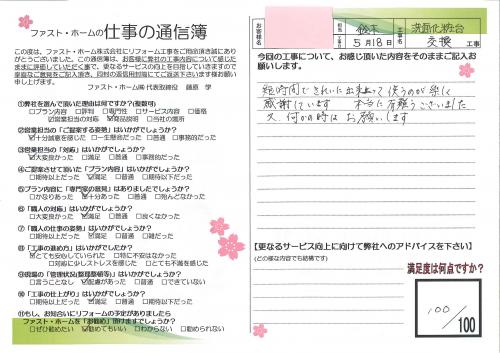 ファスト・ホームの仕事の通信簿
この度は、ファスト・ホーム株式会社にリフォーム工事をご用命頂き誠にあり
がとうございました。この通信簿は、お客様に弊社の工事内容について感じた
ままに評価していただく事で、更なるサービスの向上を目指していきますので
率直なご意見をご記入頂き、同封の返信用封筒にてご返送下さいます様お願い
申し上げます。
ファスト・ホーム㈱ 代表取締役 藤原 学
①弊社を選んで頂いた理由は何ですか？(複数可)
□プラン内容 □評判 □専門性 □サービス内容 □価格
☑営業担当の対応 ☑商品説明 □当社の場所
②営業担当の「ご提案する姿勢」はいかがでしょうか？
☑十分誠意を感じた □一生懸命だった □普通 □事務的だった
③営業担当の「対応」はいかがでしょうか？
☑大変良かった □満足 □普通 □事務的だった
④ご提案させて頂いた「プラン内容」はいかがでしょうか？
□期待以上だった ☑満足 □普通 □期待以下だった
⑤プラン内容に「専門家の意見」はありましたでしょうか？
□かなりあった ☑十分あった □普通 □殆んどなかった
⑥「職人の対応」はいかがでしょうか？
☑大変良かった □満足 □普通 □良くなかった
⑦「職人の仕事の姿勢」はいかがでしょうか？
□期待以上だった ☑満足 □普通 □雑だった
⑧「工事の進め方」はいかがでしたか？
☑とても安心していられた □特に不安はなかった
□対応に少しストレスを感じた □とても不満を感じた
⑨現場の「管理状況(整理整頓等)」はいかがでしたか？
□言うことなし ☑配慮があった □普通 □できていない
⑩「工事の仕上がり」はいかがでしょうか？
□期待以上だった ☑満足 □普通 □期待以下だった
⑪もし、お知り合いにリフォームの予定がありましたら
ファスト・ホームを「お勧め」頂けますでしょうか？
□ぜひ勧めたい ☑勧めてもいい □わからない □勧められない
お客様名
担当 鈴木
工事 洗面化粧台
5月18日
交換 工事
今回の工事について、お感じ頂いた内容をそのままご記入お
願いします。
短時間できれいに出来上り使うのが楽しく
感謝しています 本当に有難うございました
又、何かの時はお願いします
【更なるサービス向上に向けて弊社へのアドバイスを下さい】
(どの様な内容でも結構です)
満足度は何点ですか？
100/100